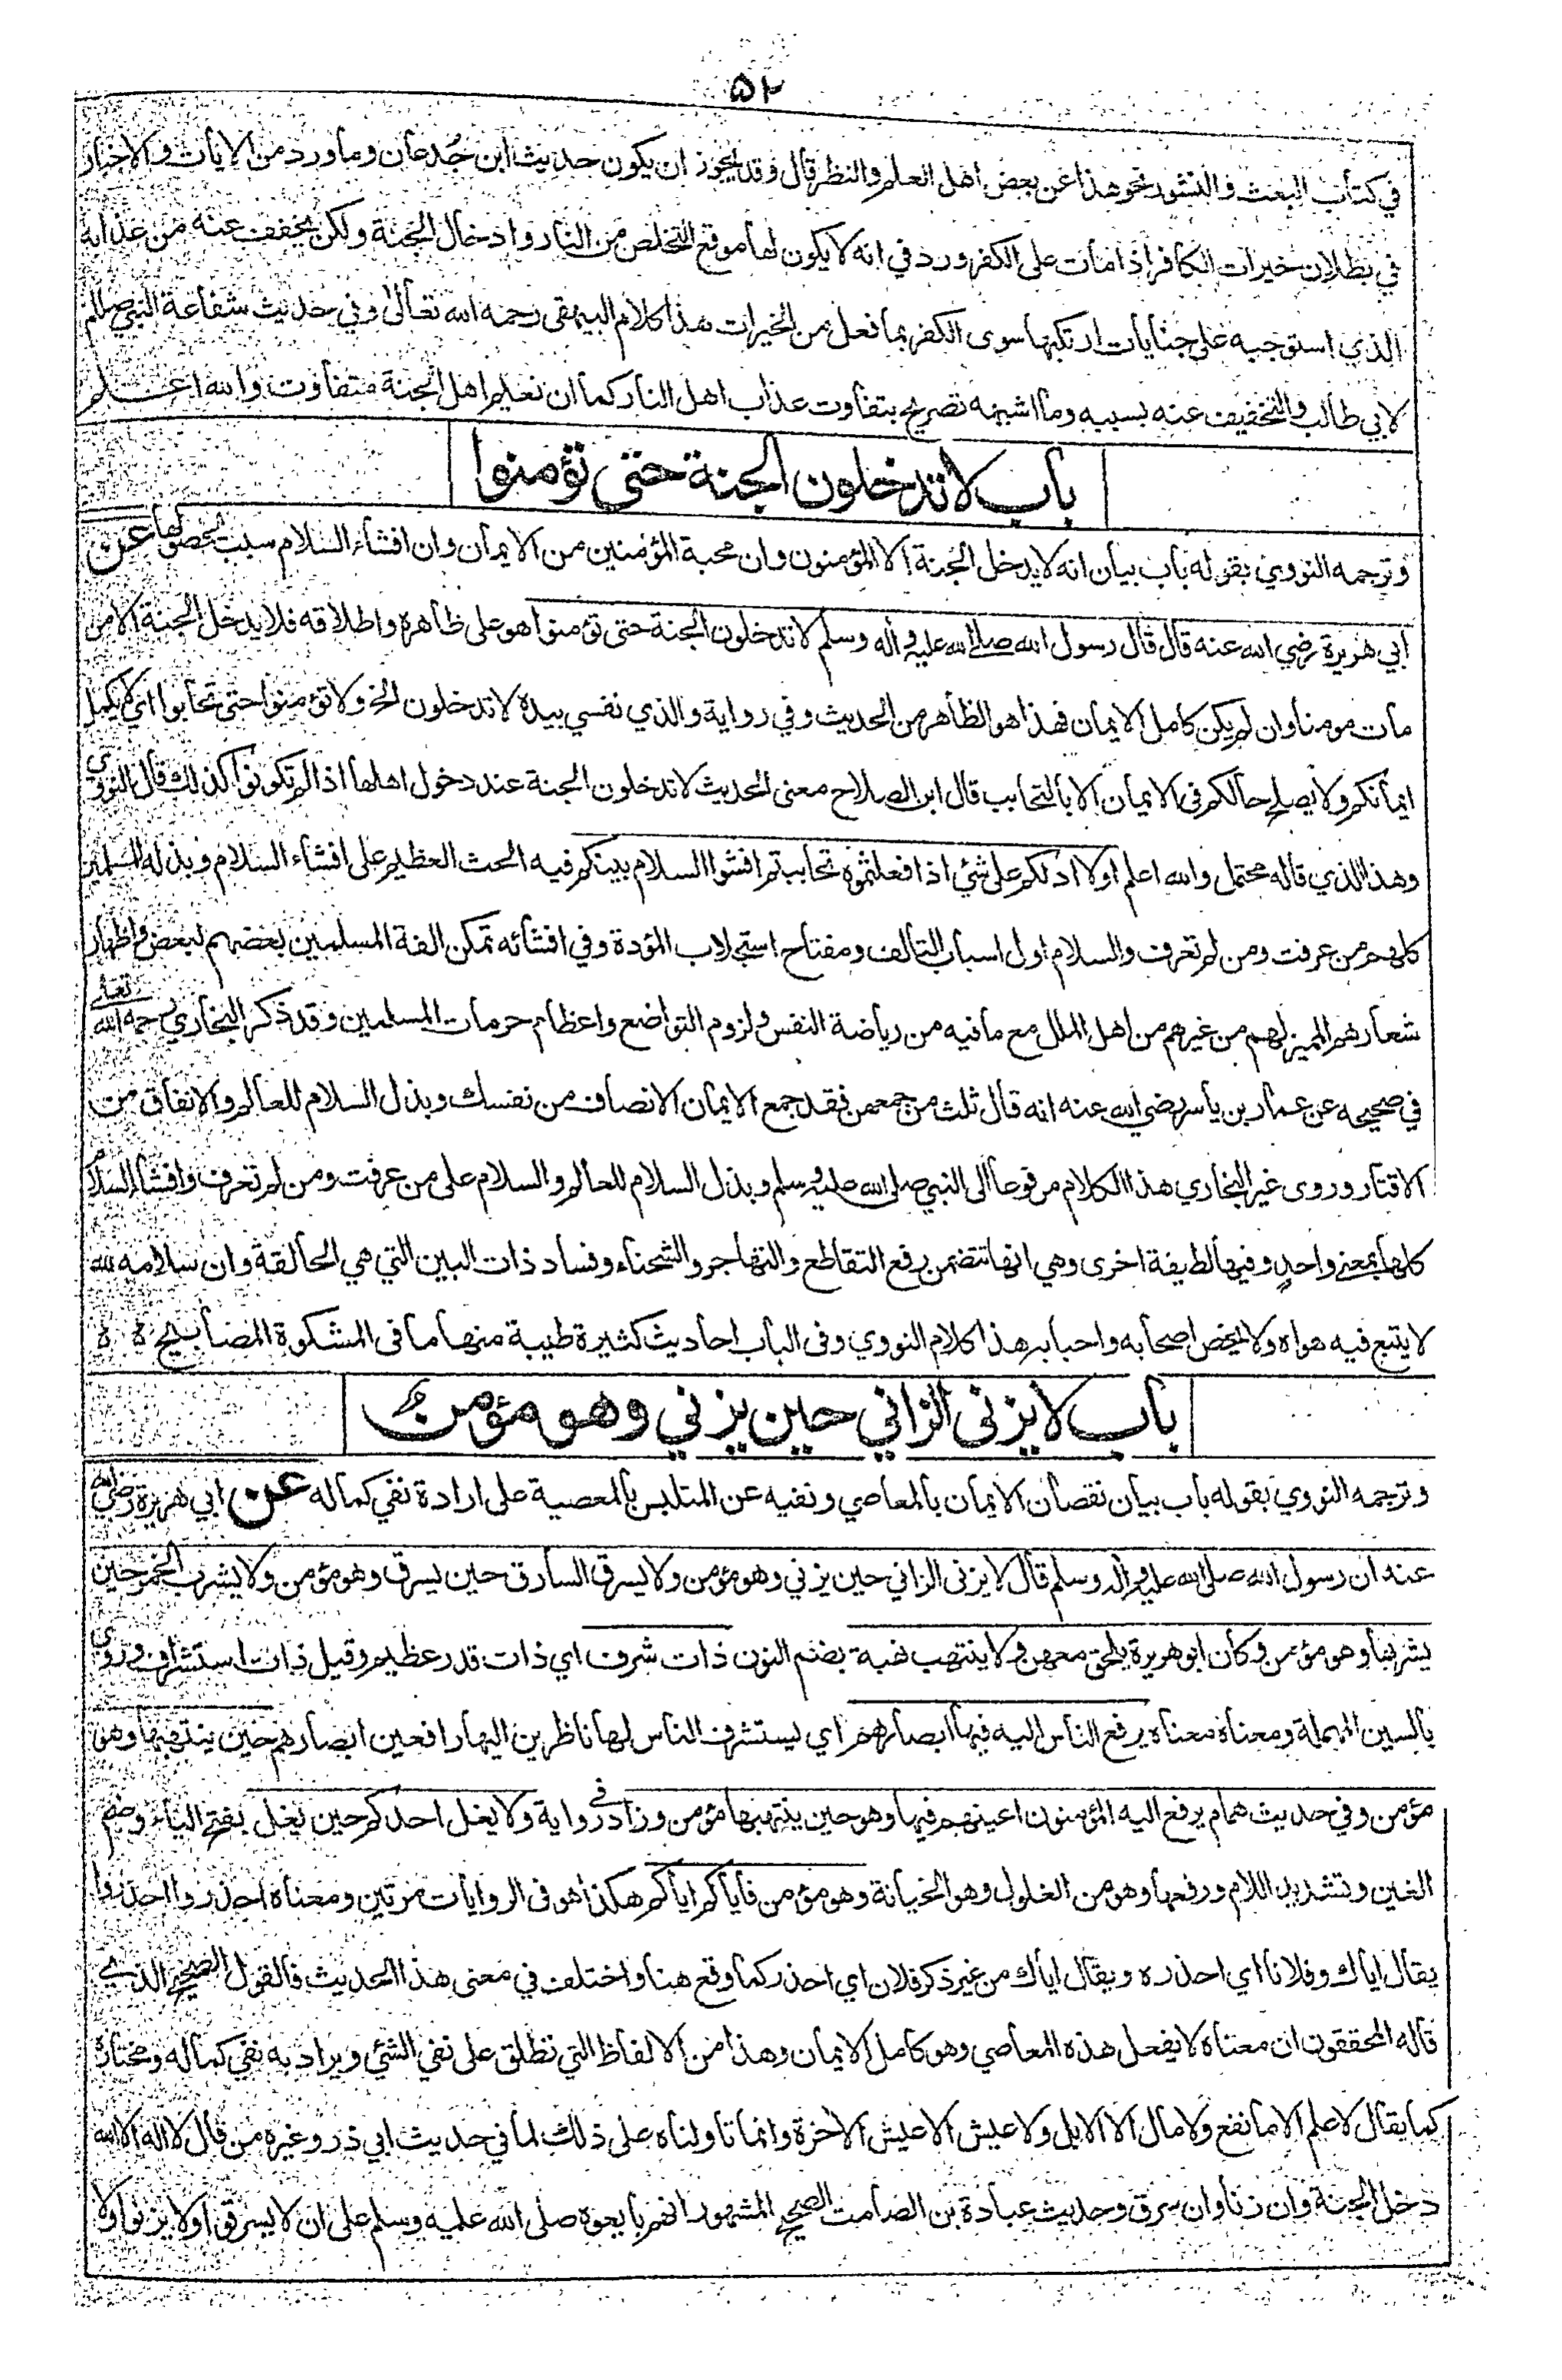 ۵۲
في كتاب البعث والنشور نحو هذا عن بعض اهل العلم والنظر قال وقد يجوز ان يكون حديث ابن جُدعان وما ورد من الايات والاخبار
في بطلان خيرات الكافر اذا مات على الكفر ورد في انه لا يكون لها موقع التخلص من النار وادخال الجنة ولكن يخفف عنه من عذابه
الذي استوجبه على جنايات ارتكبها سوى الكفر بما فعل من الخيرات هذا كلام البيهقي رحمه الله تعالى وفي حديث شفاعة النبي صللم
لابي طالب والتخفيف عنه بسببه وما اشبهه تصريح بتفاوت عذاب اهل النار كما ان نعيم اهل الجنة متفاوت والله اعلم
باب لا تدخلون الجنة حتى تؤمنوا
وترجمه النووي بقوله باب بيان انه لا يدخل الجنة الا المؤمنون وان محبة المؤمنين من الايمان وان افشاء السلام سبب لحصولها عن
ابي هريرة رضي الله عنه قال قال رسول الله صلى الله عليه وآله وسلم لا تدخلون الجنة حتى تؤمنوا هو على ظاهره واطلاقه فلا يدخل الجنة الا من
مات مومنا وان لم يكن كامل الايمان فهذا هو الظاهر من الحديث وفي رواية والذي نفسي بيده لا تدخلون الخ ولا تؤمنوا حتى تحابوا اي لا يكمل
ايمانكم ولا يصلح حالكم في الايمان الا بالتحابب قال ابن الصلاح معنى الحديث لا تدخلون الجنة عند دخول اهلها اذا لم تكونوا كذلك قال النووي
وهذا الذي قاله محتمل والله اعلم اولا ادلكم على شئ اذا فعلتموه تحاببتم افشوا السلام بينكم فيه الحث العظيم على افشاء السلام وبذله للمسلمين
كلهم من عرفت ومن لم تعرف والسلام اول اسباب التالف ومفتاح استجلاب المؤدة وفي افشائه تمكن الفة المسلمين بعضهم لبعض واظهار
شعارهم المميز لهم من غيرهم من اهل الملل مع ما فيه من رياضة النفس ولزوم التواضع واعظام حرمات المسلمين وقد ذكر البخاري رحمه الله تعالى
في صحيحه عن عمار بن ياسر رضي الله عنه انه قال ثلث من جمعهن فقد جمع الايمان الانصاف من نفسك وبذل السلام للعالم والانفاق من
الاقتار وروى غير البخاري هذا الكلام مرفوعا الى النبي صلى الله عليه وسلم وبذل السلام للعالم والسلام على من عرفت ومن لم تعرف وافشاء السلام
كلها بمعنى واحد وفيها لطيفة اخرى وهي انها تتضمن رفع التقاطع والتهاجر والشحناء وفساد ذات البين التي هي الحالقة وان سلامه لله
لا يتبع فيه هواه ولا يخص اصحابه واحبابه هذا كلام النووي وفي الباب احاديث كثيرة طيبة منها ما في المشكوة المصابيح
باب لا يزني الزاني حين يزني وهو مؤمن
وترجمه النووي بقوله باب بيان نقصان الايمان بالمعاصي ونفيه عن المتلبس بالمعصية على ارادة نفي كماله عن ابي هريرة رضي الله
عنه ان رسول الله صلى الله عليه وآله وسلم قال لا يزني الزاني حين يزني وهو مؤمن ولا يسرق السارق حين يسرق وهو مؤمن ولا يشرب الخمر حين
يشربها وهو مؤمن وكان ابو هريرة يلحق معهن ولا ينتهب نهبة بضم النون ذات شرف اي ذات قدر عظيم وقيل ذات استشراف وروي
بالسين المهملة ومعناه معناه يرفع الناس اليه فيها ابصارهم اي ليستشرف الناس لها ناظرين اليها رافعين ابصارهم حين ينتهبها وهو
مؤمن وفي حديث همام يرفع اليه المؤمنون اعينهم فيها وهو حين ينتهبها مؤمن وزاد في رواية ولا يغل احدكم حين يغل بفتح الياء وضم
الغين وتشديد اللام ورفعها وهو من الغلول وهو الخيانة وهو مؤمن فاياكم اياكم هكذا هو في الروايات مرتين ومعناه احذروا احذروا
يقال اياك وفلانا اي احذره ويقال اياك من غير ذكر فلان اي احذر كما وقع هنا واختلف في معنى هذا الحديث فالقول الصحيح الذي
قاله المحققون ان معناه لا يفعل هذه المعاصي وهو كامل الايمان وهذا من الالفاظ التي تطلق على نفي الشئ ويراد به نفي كماله ومختاره
كما يقال لا علم الا ما نفع ولا مال الا الابل ولا عيش الا عيش الآخرة وانما تاولناه على ذلك لما في حديث ابي ذر وغيره من قال لا اله الا الله
دخل الجنة وان زنا وان سرق وحديث عبادة بن الصامت الصحيح المشهور انهم بايعوه صلى الله عليه وسلم على ان لا يسرقوا ولا يزنوا ولا